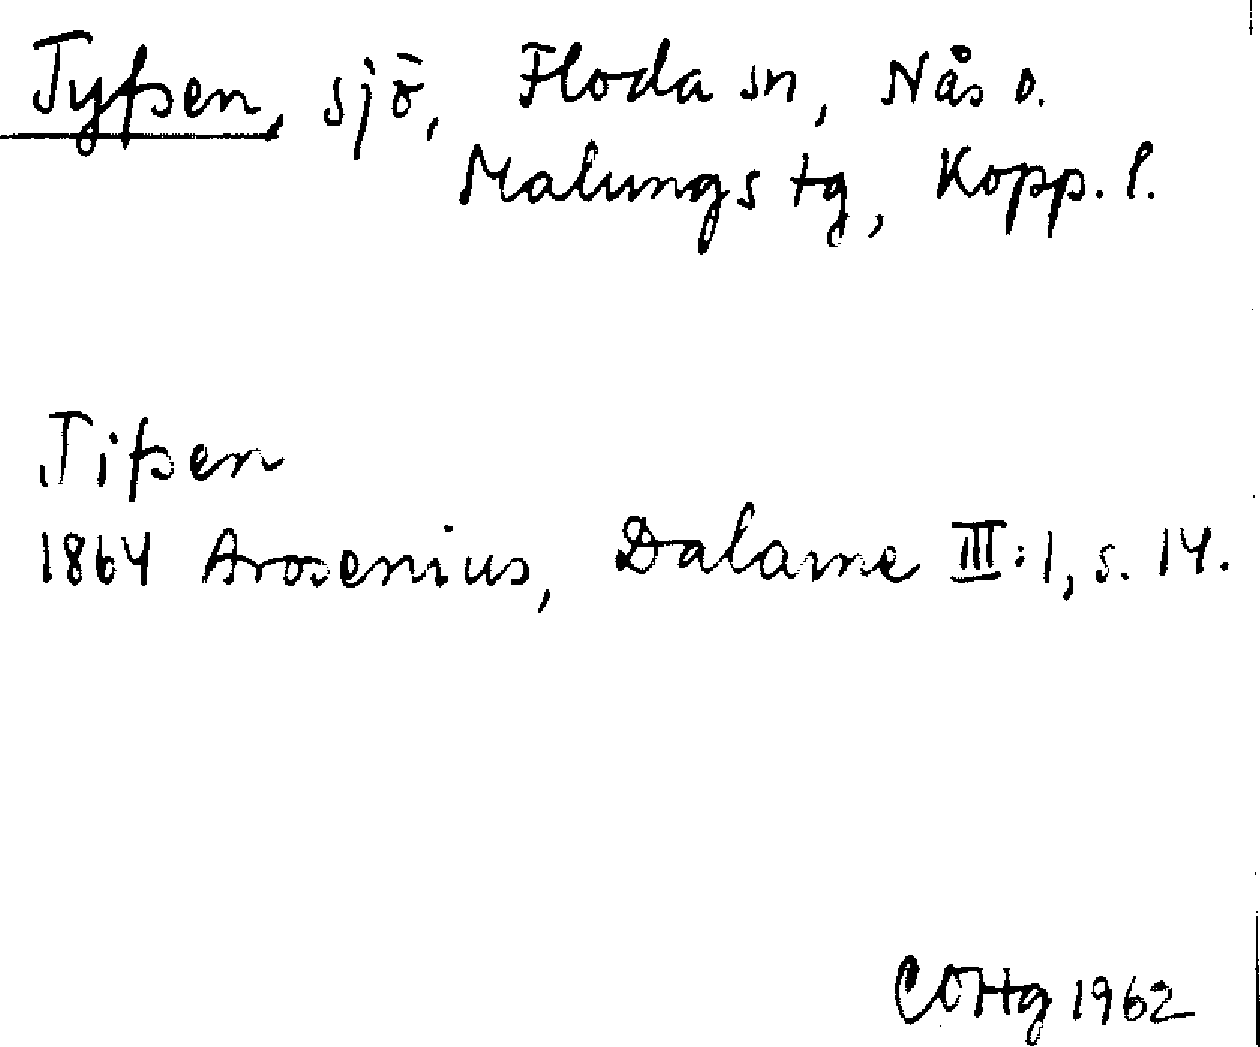 Typsen, sjö, Floda sn, Nås o.
Malungs tg, Kopp. l.
Tipsen
1864 Arosenius, Dalarne III:1, s. 14.
COHg 1962